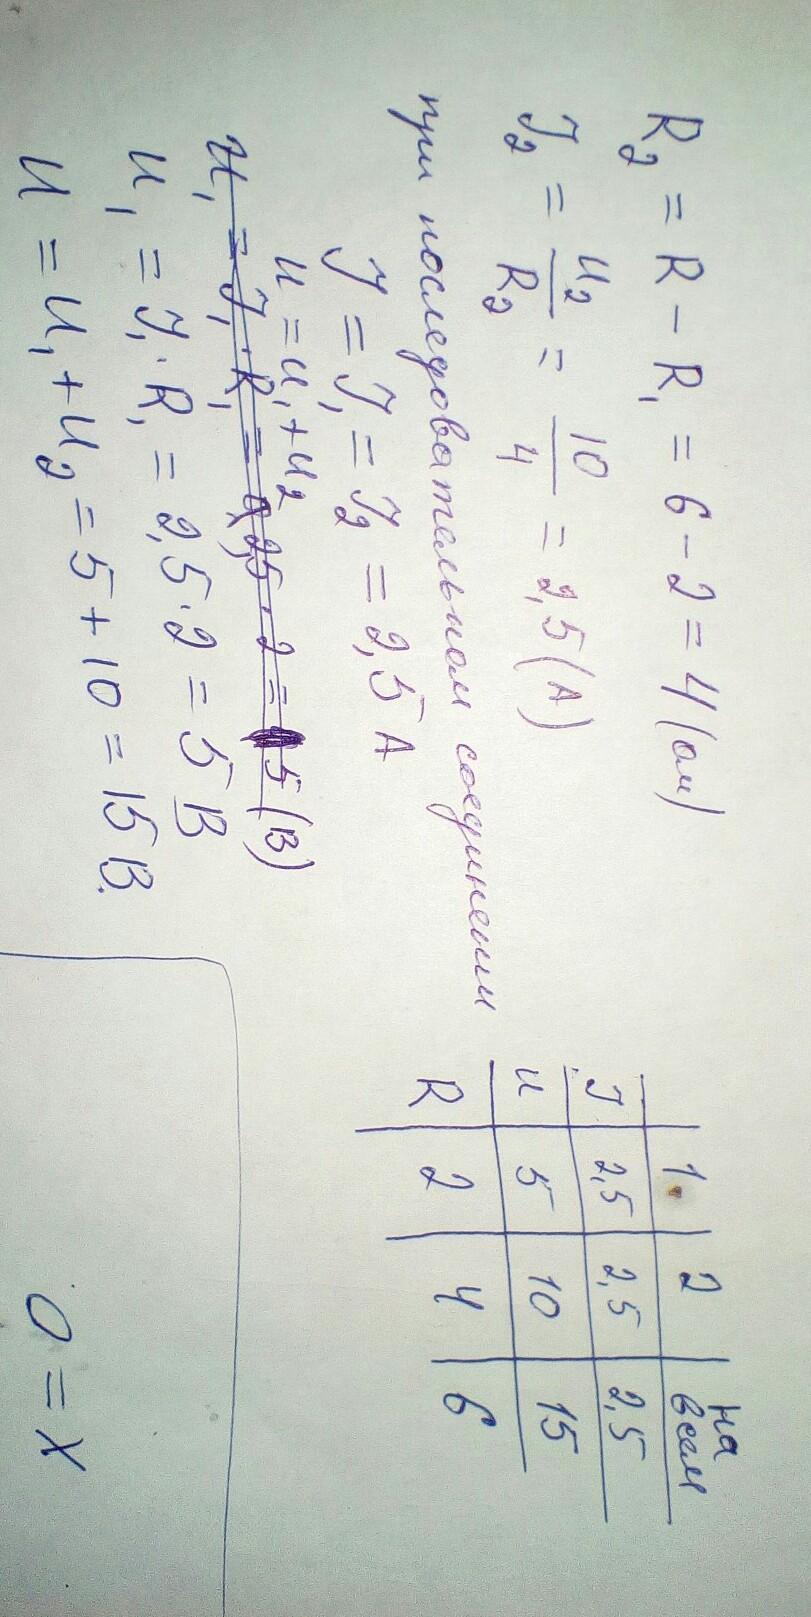 R₂ = R − R₁ = 6 − 2 = 4 (ом)
J₂ = U₂/R₂ = 10/4 = 2,5 (А)
при последовательном соединении
J = J₁ = J₂ = 2,5 А
U = U₁ + U₂
U₁ = J₁ · R₁ = 2,5 · 2 = 5 (В)
U₁ = J₁ · R₁ = 2,5 · 2 = 5 В
U = U₁ + U₂ = 5 + 10 = 15 В.
1 2 на всем
J 2,5 2,5 2,5
U 5 10 15
R 2 4 6
0 = X